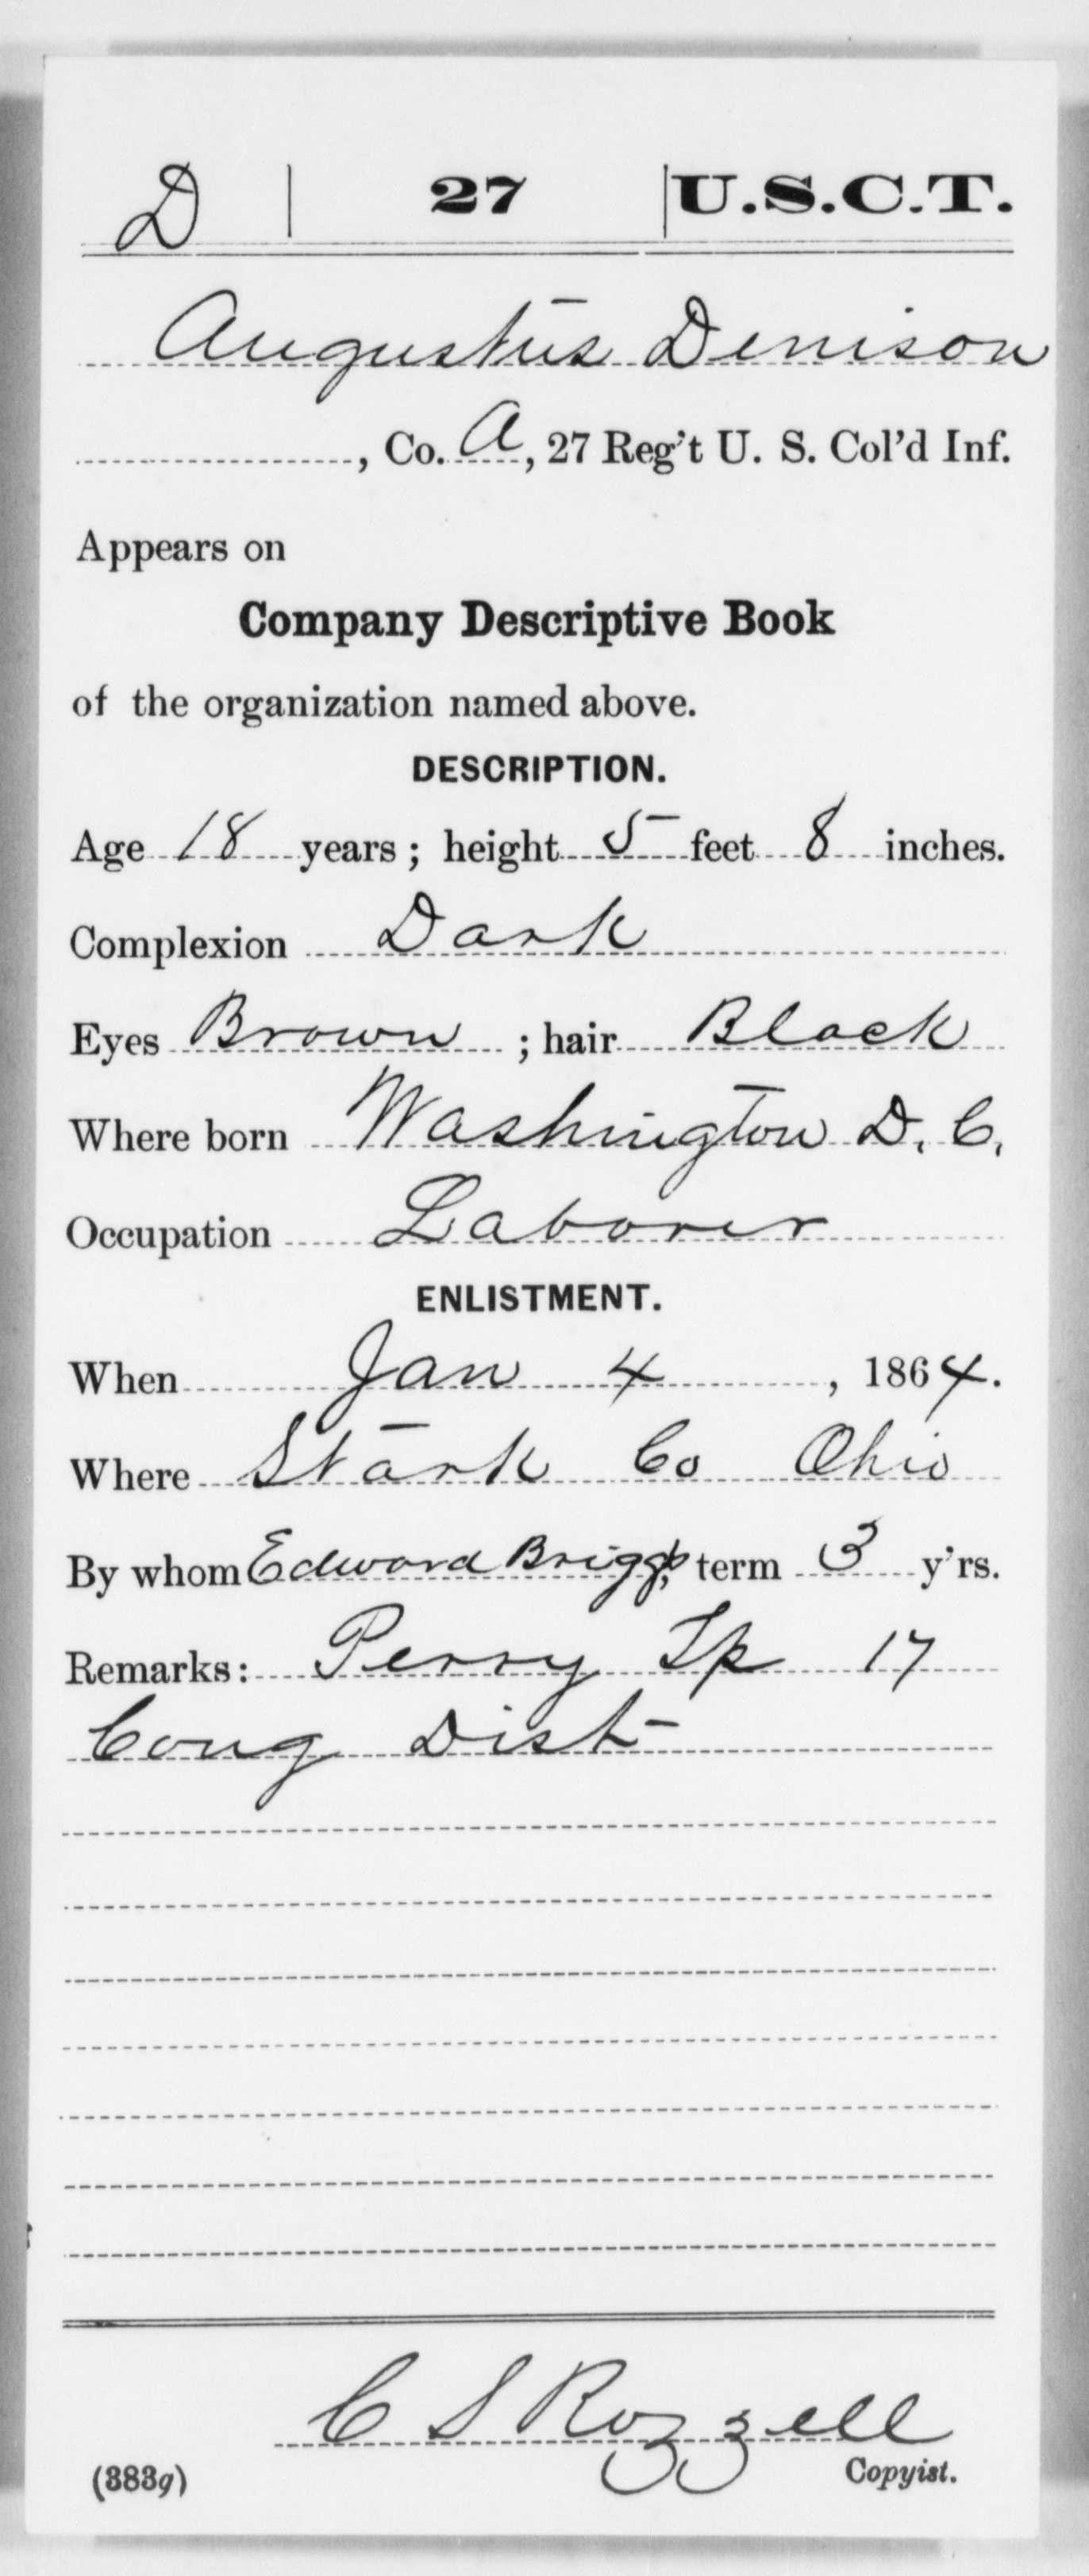 D | 27 | U.S.C.T.
Augustus Denison
, Co. A, 27 Reg't U. S. Col'd Inf.
Appears on
Company Descriptive Book
of the organization named above.
DESCRIPTION.
Age 18 years; height 5 feet 8 inches.
Complexion Dark
Eyes Brown ; hair Black
Where born Washington D. C.
Occupation Laborer
ENLISTMENT.
When Jan 4, 1864.
Where Stark Co Ohio
By whom Edward Briggs, term 3 y'rs.
Remarks: Perry Tp 17
Cong Dist
C S Rozzell
(383g) Copyist.